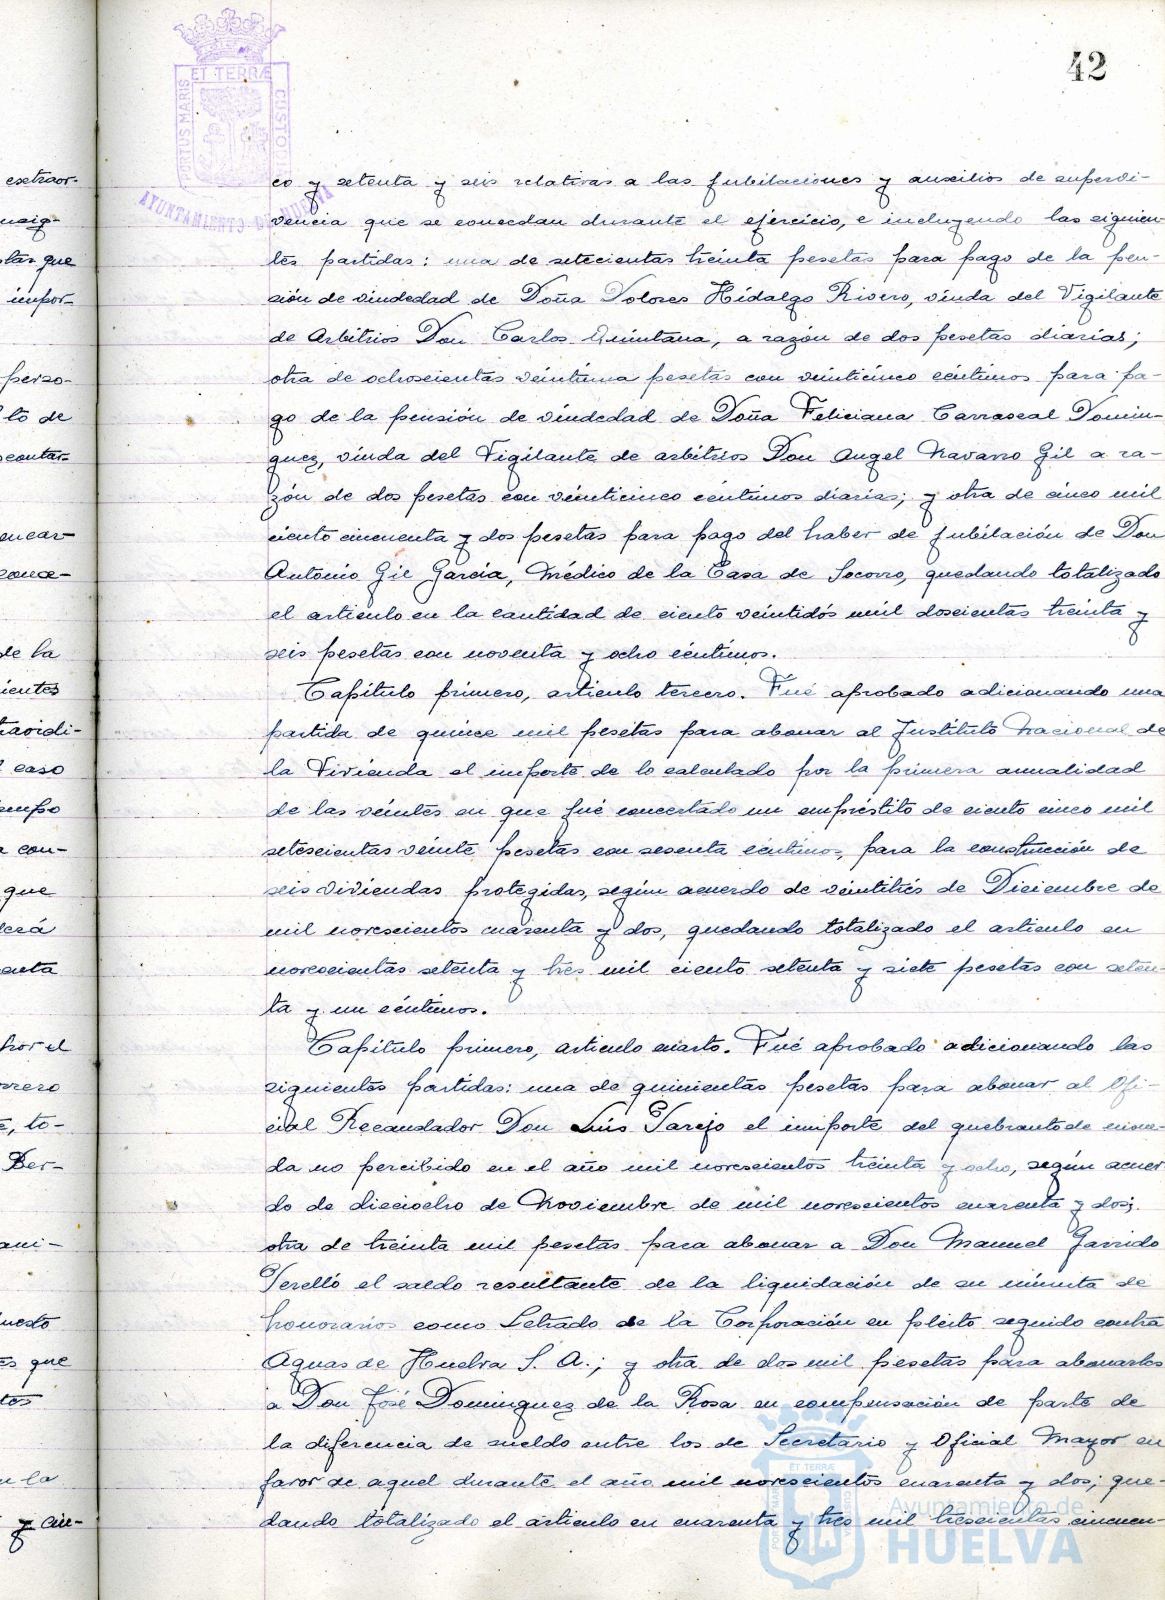 42
PORTUS MARIS
ET TERRÆ
CUSTODIA
AYUNTAMIENTO DE HUELVA
extraor-
que
impor-
perso-
to de
contar-
encar-
conce-
de la
cientes
traordi-
caso
empo
a con-
que
cuenta
por el
to-
Ber-
uesto
es que
u la
y cin-
co y setenta y seis relativas a las jubilaciones y auxilios de supervi-
vencia que se concedan durante el ejercicio, e incluyendo las siguien-
tes partidas: una de setecientas treinta pesetas para pago de la pen-
sión de viudedad de Doña Dolores Hidalgo Rivero, viuda del Vigilante
de Arbitrios Don Carlos Quintana, a razón de dos pesetas diarias;
otra de ochocientas veintiuna pesetas con veinticinco céntimos para pa-
go de la pensión de viudedad de Doña Feliciana Carrascal Domin-
guez, viuda del Vigilante de arbitrios Don Angel Navarro Gil a ra-
zón de dos pesetas con veinticinco céntimos diarias; y otra de cinco mil
ciento cincuenta y dos pesetas para pago del haber de jubilación de Don
Antonio Gil García, Médico de la Casa de Socorro, quedando totalizado
el artículo en la cantidad de ciento veintidós mil doscientas treinta y
seis pesetas con noventa y ocho céntimos.
Capítulo primero, artículo tercero. Fué aprobado adicionando una
partida de quince mil pesetas para abonar al Instituto Nacional de
la Vivienda el importe de lo calculado por la primera anualidad
de las veintes en que fué concertado un empréstito de ciento cinco mil
setescientas veinte pesetas con sesenta céntimos, para la construcción de
seis viviendas protegidas, según acuerdo de veintitrés de Diciembre de
mil novescientos cuarenta y dos, quedando totalizado el artículo en
novescientas setenta y tres mil ciento setenta y siete pesetas con seten-
ta y un céntimos.
Capítulo primero, artículo cuarto. Fué aprobado adicionando las
siguientes partidas: una de quinientas pesetas para abonar al Ofi-
cial Recaudador Don Luis Tarejo el importe del quebranto de mone-
da no percibido en el año mil novescientos treinta y ocho, según acuer
do de dieciocho de Noviembre de mil novescientos cuarenta y dos;
otra de treinta mil pesetas para abonar a Don Manuel Garrido
Perelló el saldo resultante de la liquidación de su minuta de
honorarios como Letrado de la Corporación en pleito seguido contra
Aguas de Huelva S. A.; y otra de dos mil pesetas para abonarlas
a Don José Dominguez de la Rosa en compensación de parte de
la diferencia de sueldo entre los de Secretario y Oficial Mayor en
favor de aquel durante el año mil novescientos cuarenta y dos; que-
dando totalizado el artículo en cuarenta y tres mil trescientas cincuen-
Ayuntamiento de
HUELVA